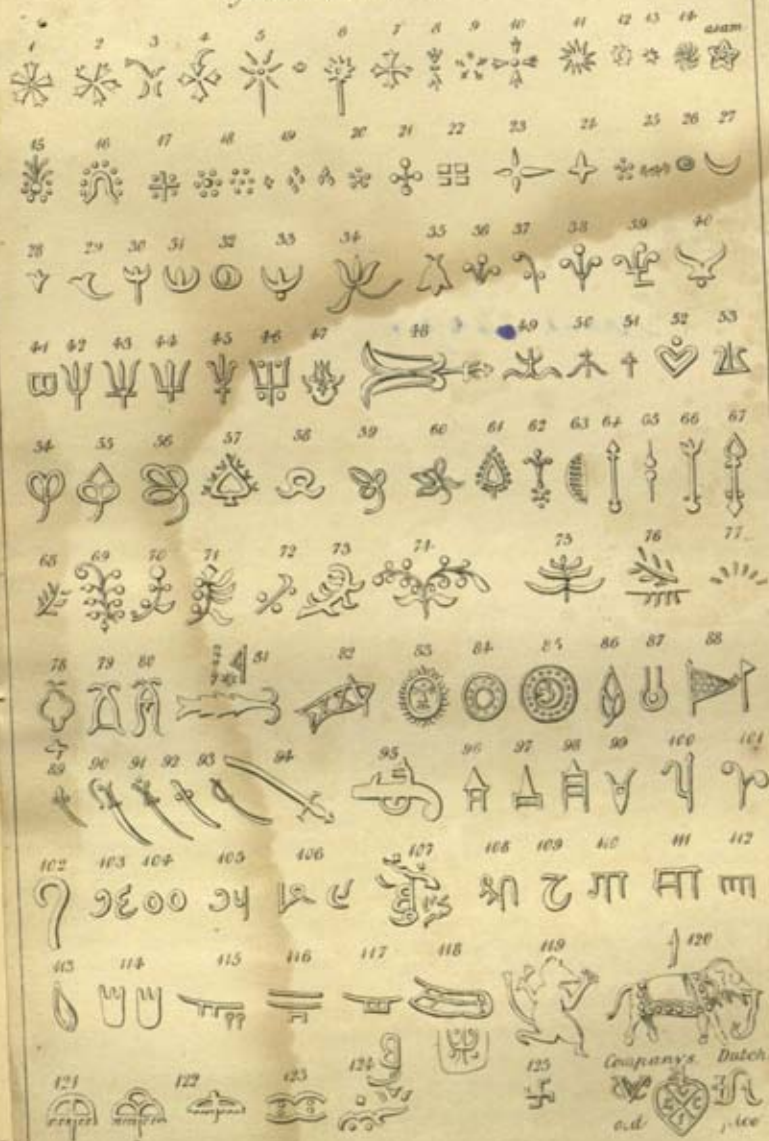 1 2 3 4 5 6 7 8 9 10 11 12 13 14 asam
15 16 17 18 19 20 21 22 23 24 25 26 27
28 29 30 31 32 33 34 35 36 37 38 39 40
41 42 43 44 45 46 47 48 49 50 51 52 53
54 55 56 57 58 59 60 61 62 63 64 65 66 67
68 69 70 71 72 73 74 75 76 77
78 79 80 81 82 83 84 85 86 87 88
89 90 91 92 93 94 95 96 97 98 99 100 101
102 103 104 105 106 107 108 109 110 111 112
113 114 115 116 117 118 119 120
Companys Dutch
121 122 123 124 125
old